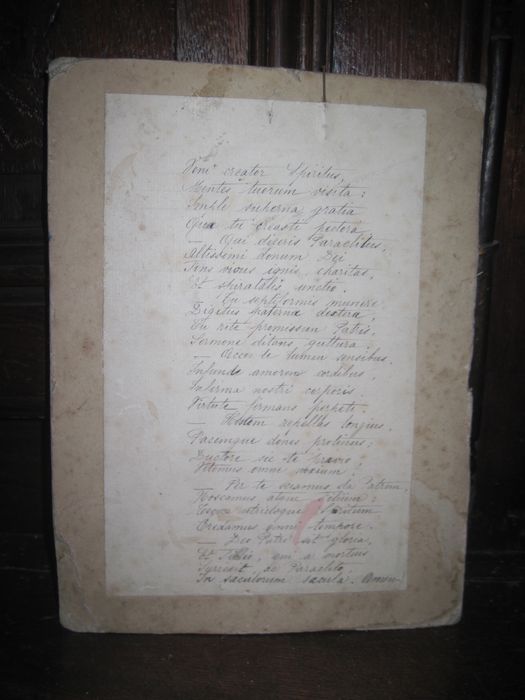 Veni creator Spiritus,
Mentes tuorum visita:
Imple superna gratia
Qua tu creasti pectora
— Qui diceris Paraclitus,
Altissimi donum Dei
Fons vivus ignis, charitas,
Et spiritalis unctio.
Tu septiformis munere
Digitus paterna dextera,
Tu rite promissum Patris,
Sermone ditans guttura.
— Accende lumen sensibus,
Infunde amorem cordibus,
Infirma nostri corporis
Virtute firmans perpeti.
— Hostem repellas longius,
Pacemque dones protinus;
Ductore sic te prævio
Vitemus omne noxium!
— Per te sciamus da Patrem,
Noscamus atque Filium:
utriusque Spiritum
Credamus omni tempore.
— Deo Patri sit gloria,
Et Filio, qui a mortuis
Surrexit, ac Paraclito,
In sæculorum sæcula. Amen